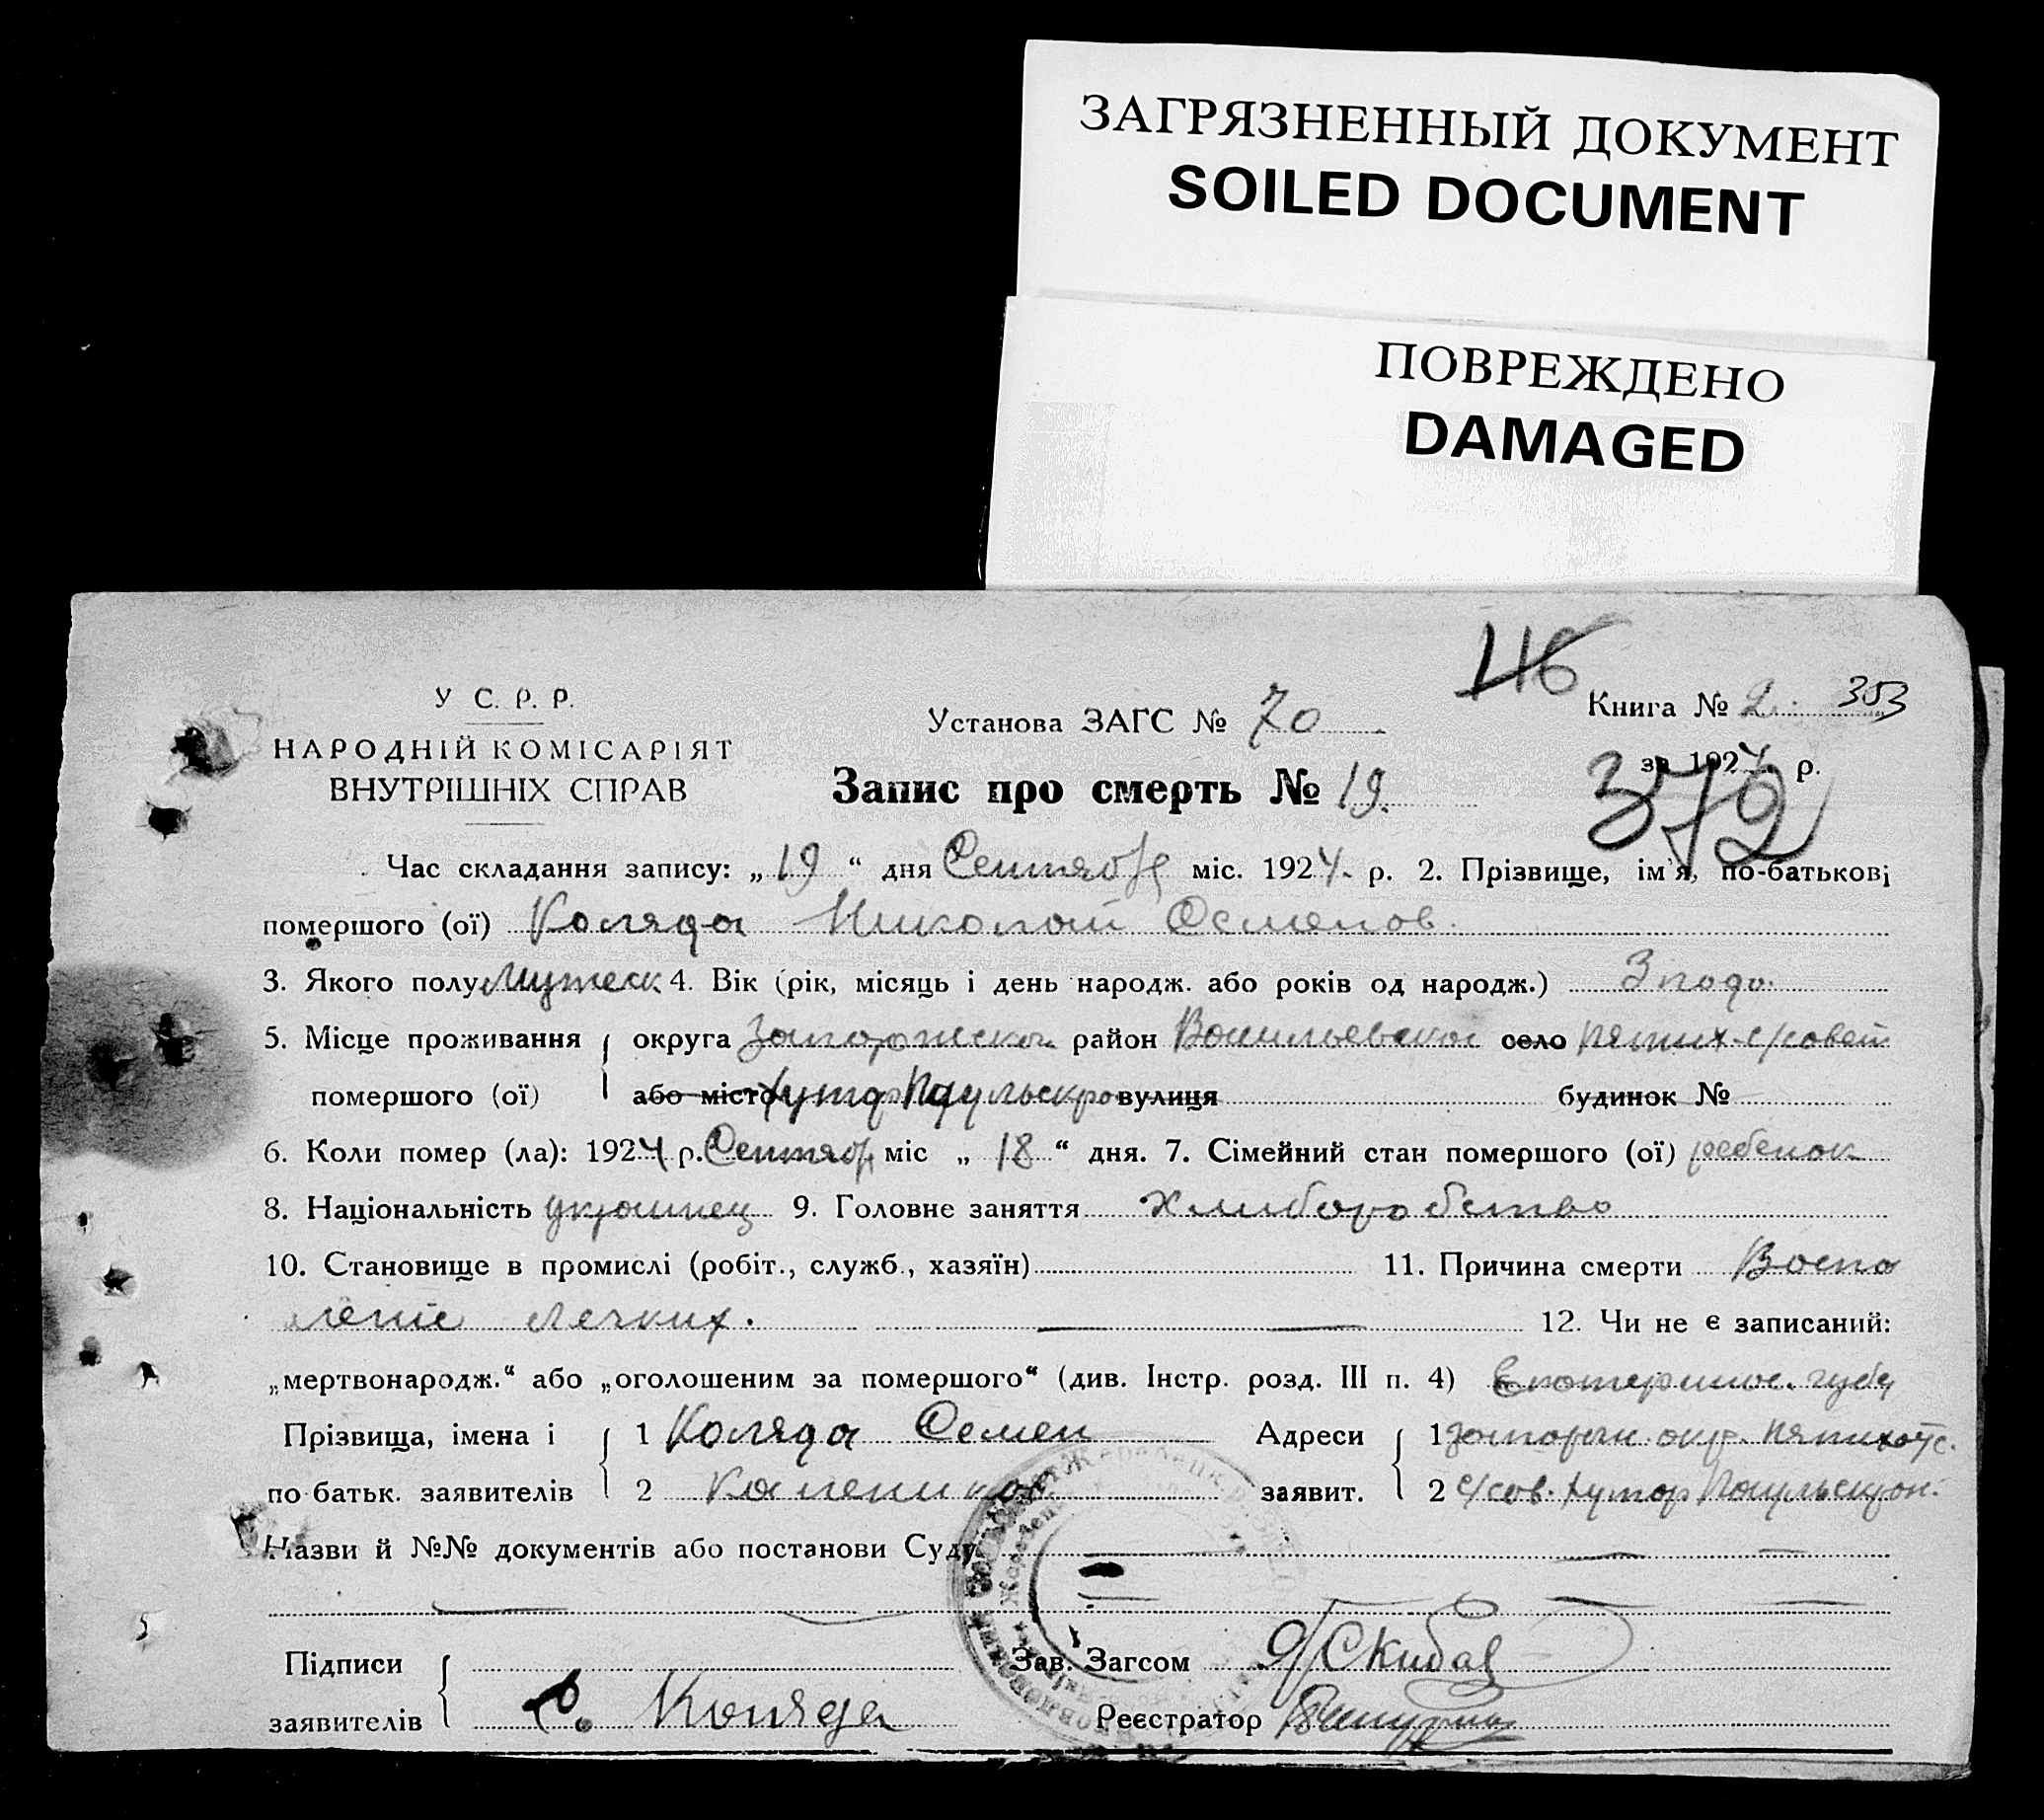 ЗАГРЯЗНЕННЫЙ ДОКУМЕНТ
SOILED DOCUMENT
ПОВРЕЖДЕНО
DAMAGED
116
У С. Р. Р.
НАРОДНІЙ КОМІСАРІЯТ
ВНУТРІШНІХ СПРАВ
Установа ЗАГС № 70
Книга № 2. 353
за 1924 р.
372
Запис про смерть № 19.
Час складання запису: „19“ дня Сентябр міс. 1924. р. 2. Прізвище, ім'я, по-батькові
помершого (ої) Коляда Николай Семенов.
3. Якого полу Мужеск 4. Вік (рік, місяць і день народж. або років од народж.) 3 года.
5. Місце проживання округа Запорожская район Васильевская село пятих. с/совет
помершого (ої) або місто хутор вулиця будинок №
6. Коли помер (ла): 1924 р. Сентябр міс „18“ дня. 7. Сімейний стан помершого (ої) ребенок
8. Національність украинец 9. Головне заняття хлиборобство
10. Становище в промислі (робіт., служб., хазяїн) 11. Причина смерти Воспа
ление легких. 12. Чи не є записаний:
„мертвонародж.“ або „оголошеним за помершого“ (див. Інстр. розд. III п. 4) Екатеринос. губ
Прізвища, імена і 1 Коляда Семен Адреси 1 запорож. окр.
по батьк. заявителів 2 заявит. 2 с/сов. хутор
Назви й №№ документів або постанови Суду
Підписи Зав. Загсом Скибa
заявителів Коляда Реєстратор